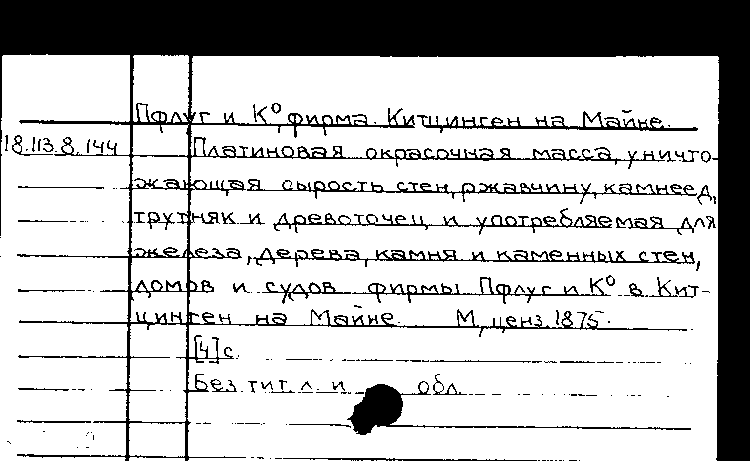 Пфлуг и К⁰, фирма. Китцинген на Майне.
18.113.8.144 Платиновая окрасочная масса, уничто-
жающая сырость стен, ржавчину, камнеед,
трутняк и древоточец и употребляемая для
железа, дерева, камня и каменных стен,
домов и судов фирмы Пфлуг и К⁰ в Кит-
цинген на Майне. М, ценз. 1875.
[4] с.
Без тит. л. и обл.